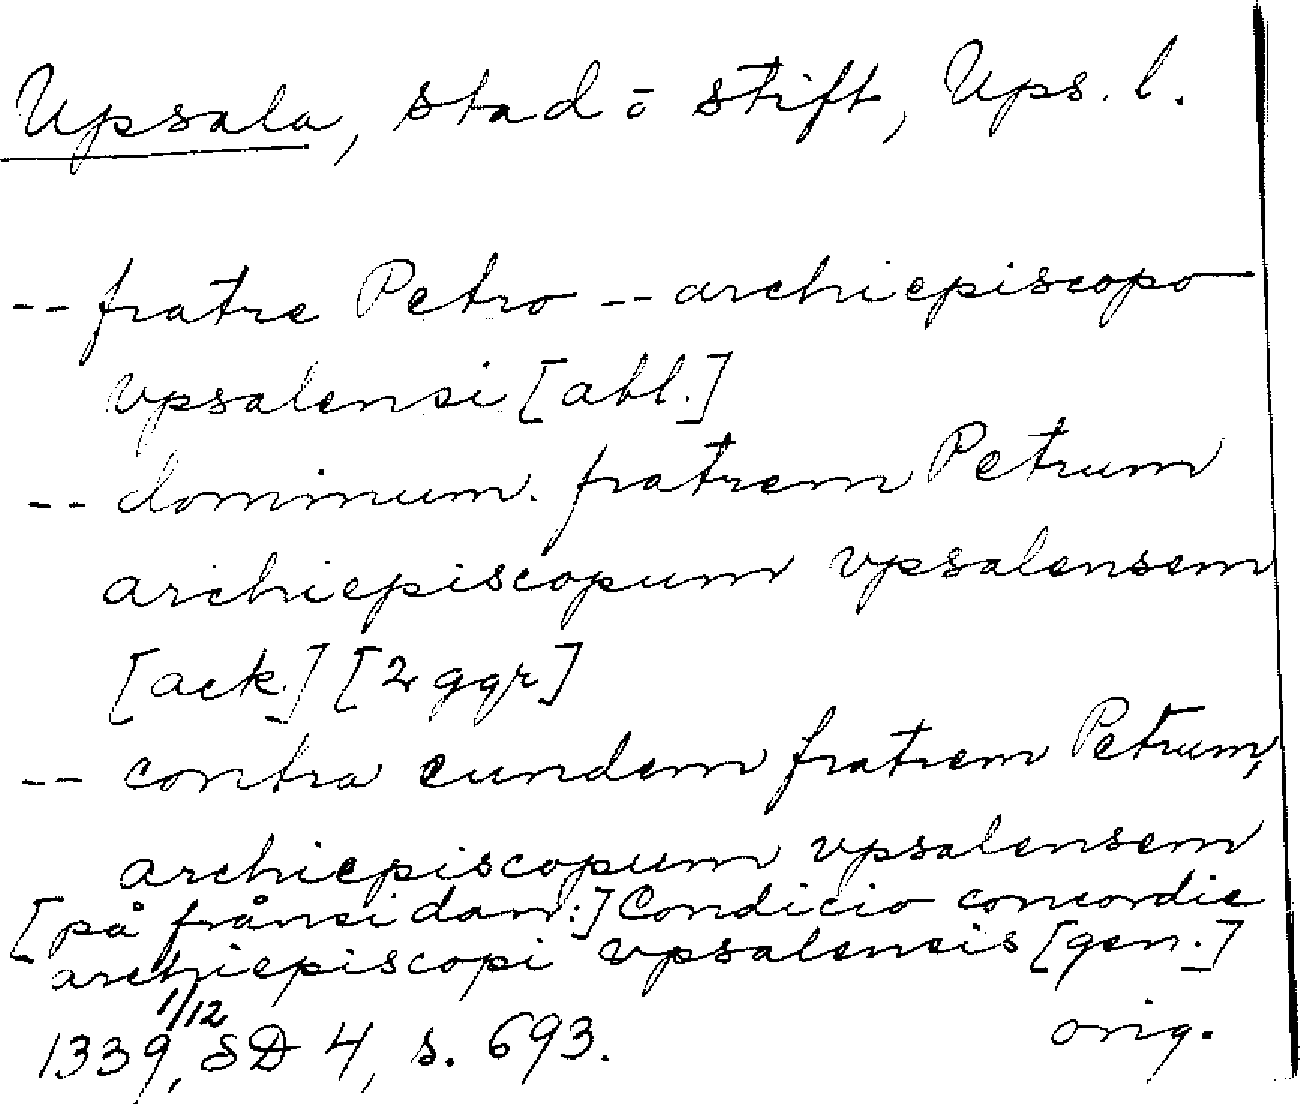 Upsala, stad o stift, Ups. l.
-- fratre Petro -- archiepiscopo
vpsalensi [abl.]
-- dominum. fratrem Petrum
archiepiscopum vpsalensem
[ack.] [2 ggr]
-- contra eundem fratrem Petrum,
archiepiscopum vpsalensem
[på frånsidan:] Condicio concordie
archiepiscopi vpsalensis [gen.]
1339 1/12, SD 4, s. 693. orig.